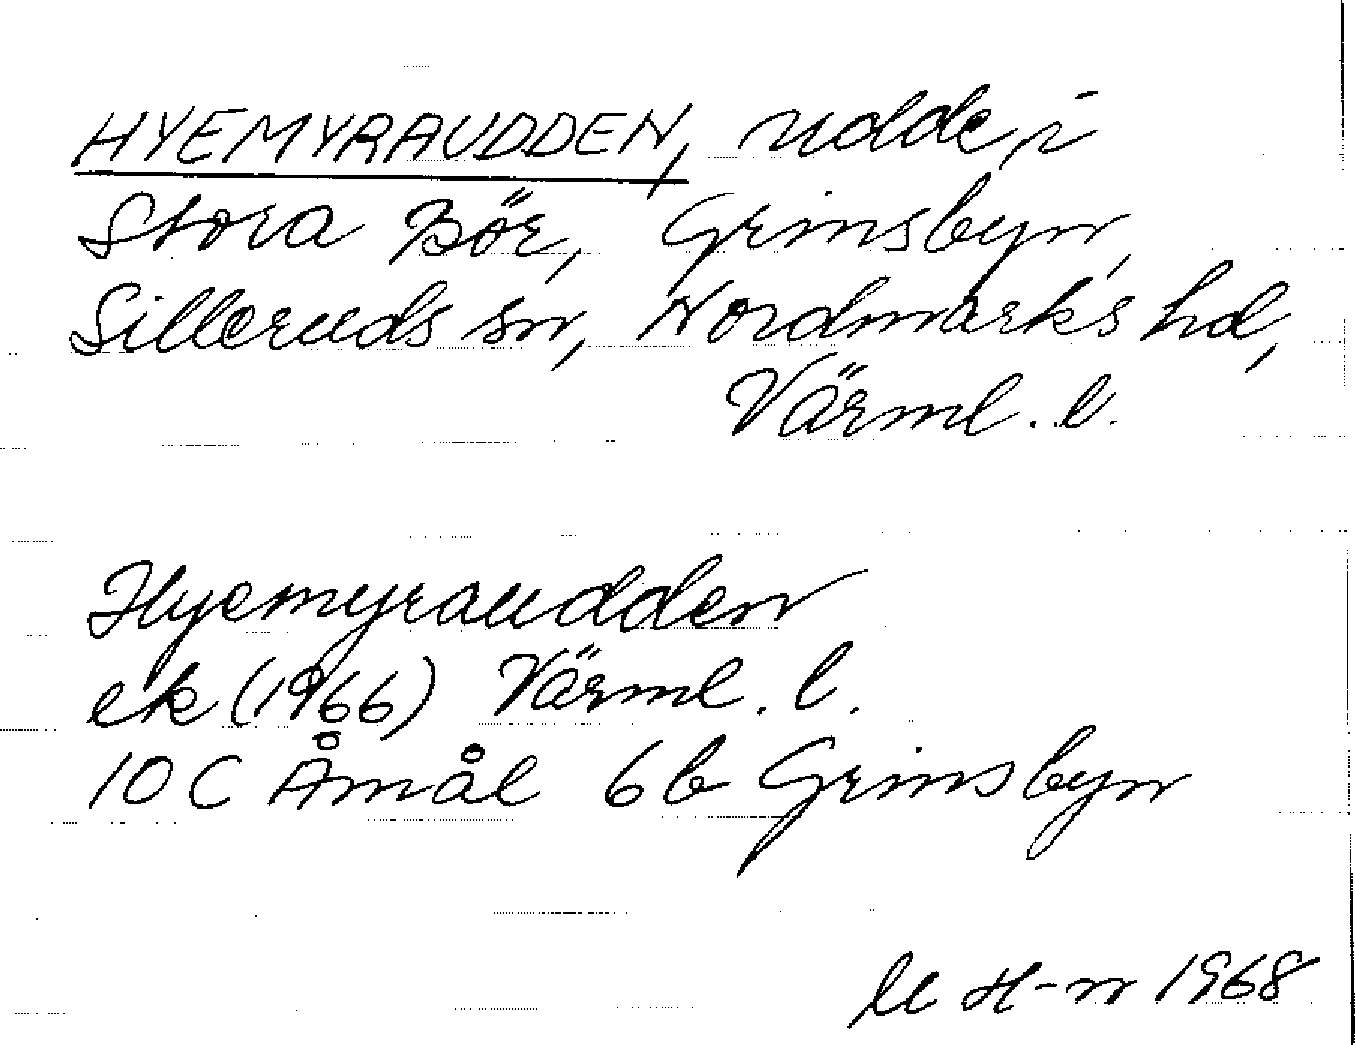 HYEMYRAUDDEN, udde i
Stora Bör, Grinsbyn,
Silleruds sn, Nordmarks hd,
Värml. l.
Hyemyraudden
ek (1966) Värml. l.
10 C Åmål 6b Grinsbyn
M H-n 1968